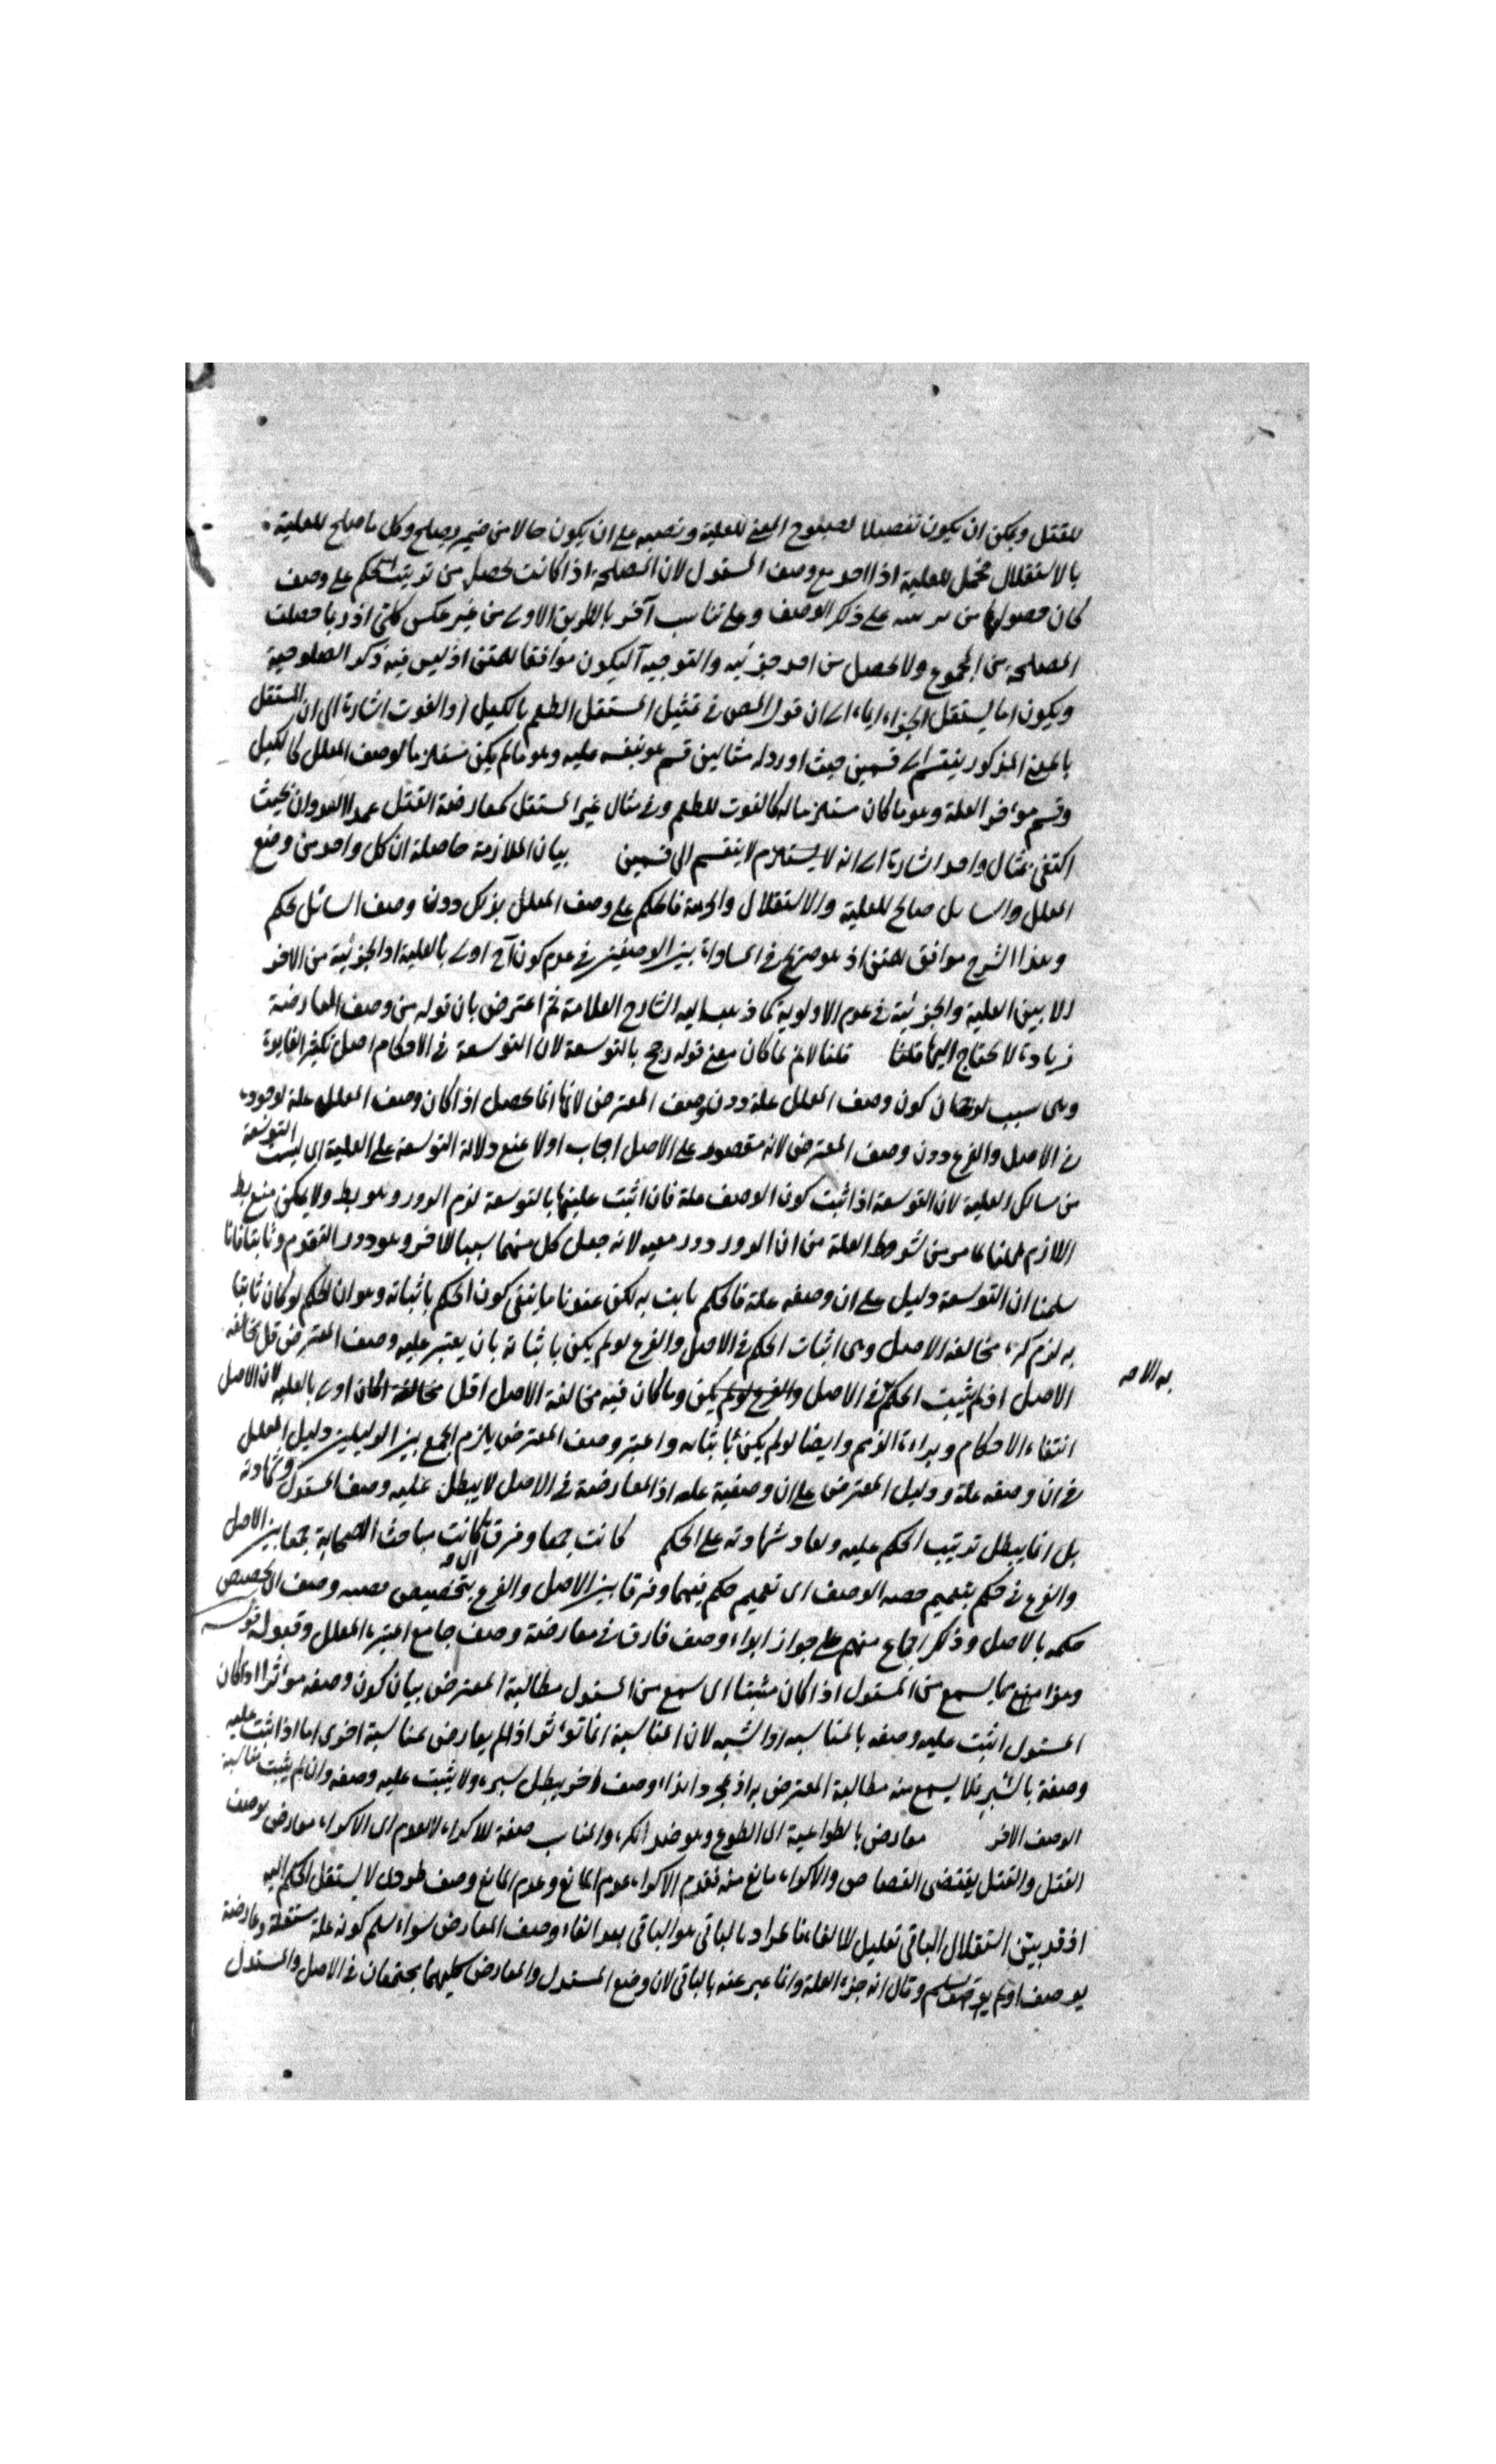 للقتل ويمكن ان يكون تفصيلا لصلوح المعنى للعلية ونصبه على ان يكون حالا من ضمير وصلح وكل ما صلح للعلية
بالاستقلال محتمل للعلية اذا احد مع وصف المستدل لان المصلحة اذا كانت تحصل من ترتيب الحكم على وصف
كان حصولها من على ذكر الوصف وعلى تناسب آخر بالطريق الاولى من غير عكس كلي اذ ربما حصلت
المصلحة من المجموع ولا تحصل من احد جزئيه والتوجيه ليكون موافقا للمتن اذ ليس فيه ذكر الصلوحية
ويكون اما ليستقل الجزاء ايماء الى ان قول المص في تمثيل المستقل الطعم بالكيل او القوت اشارة الى ان المستقل
بالمعنى المذكور ينقسم الى قسمين حيث اورد له مثالين قسم هو بنفسه علية وهو ما لم يكن مستلزما لوصف المعلل كالكيل
وقسم هو جزء العلة وهو ما كان مستلزما له كالقوت للطعم وفي مثال غير المستقل كمعارضة القتل عمدا لعدوان بحيث
اكتفى بمثال واحد اشارة الى انه لا يستلزم لا ينقسم الى قسمين بيان الملازمة حاصله ان كل واحد من وضع
المعلل والسائل صالح للعلية والاستقلال والجزئية فالحكم على وصف المعلل بذلك دون وصف السائل تحكم
وهذا الشرح موافق للمتن اذ هو صريح في المساواة بين الوصفين في عدم كون اولى بالعلية او الجزئية من الاخر
لا بين العلية والجزئية في عدم الاولوية كما ذهب اليه الشارح العلامة ثم اعترض بان قوله من وصف المعارضة
زيادة لا يحتاج اليها قلنا قلنا لا نم لما كان معنى قوله رجح بالتوسعة لان التوسعة في الاحكام اصل تكثير الفائدة
وهي سبب لرجحان كون وصف المعلل علة دون وصف المعترض لانها انما تحصل اذا كان وصف المعلل علة لوجوده
في الاصل والفرع دون وصف المعترض لانه مقصور على الاصل اجاب اولا بمنع دلالة التوسعة على العلية اي ليست التوسعة
من مسالك العلية لان التوسعة اذا اثبت كون الوصف علة فان اثبت عليتها بالتوسعة لزم الدور وهو بط ولا يمكن منع بط
اللازم لما مر من شروط العلة من ان الدور دور معية لانه جعل كل منهما سببا للاخر وهو دور التقدم وثانيا بانا
سلمنا ان التوسعة دليل على ان وصفه علة فالحكم ثابت به لكن عندنا ما ينفي كون الحكم باثباته وهو ان الحكم لو كان ثابتا
به لزم كثرة مخالفة الاصل وهي اثبات الحكم في الاصل والفرع لو لم يكن باثباته بان يعتبر علية وصف المعترض قل مخالفة
الاصل اذ لم يثبت الحكم في الاصل والفرع لو لم يكن وما كان فيه مخالفة الاصل اقل كان اولى بالعلية لان الاصل
به الاصـ
انتفاء الاحكام وبراءة الذمم وايضا لو لم يكن باثباته واعتبر وصف المعترض يلزم الجمع بين الدليلين دليل المعلل
في ان وصفه علة ودليل المعترض على ان وصفية علة اذ المعارضة في الاصل لا يبطل علية وصف المستدل وشهادته
بل انما يبطل ترتيب الحكم عليه وتعاد شهادته على الحكم كانت جمعا وفرقا كانت مباحث الصحابة جمعا بين الاصل
والفرع في حكم بتعميم الوصف اي تعميم حكم فيهما وفرقا بين الاصل والفرع بتخصيص وصف اي تخصيص
حكمه بالاصل وذكر اجماع منهم على جواز ابداء وصف فارق في معارضة وصف جامع اعتبره المعلل وقبوله قوله
وهذا منع مما يسمع من المستدل اذا كان مثبتا اي سمع من المستدل مطالبة المعترض ببيان كون وصفه مؤثرا اذا كان
المستدل اثبت علية وصفه بالمناسبة او الشبه لان المناسبة انما تؤثر اذا لم يعارض بمناسبة اخرى اما اذا اثبت علية
وصفه بالسبر فلا يسمع منه مطالبة المعترض به اذ بمجرد ابداء وصف اخر يبطل سبره ولا يثبت علية وصفه وان لم يثبت مناسبة
الوصف الاخر معارض بالطواعية اي الطوع وهو ضد الكره والمناسب صفة للاكراه لا لعدم اي الاكراه معارض لوصف
القتل والقتل يقتضي القصاص والاكراه مانع منه فعدم الاكراه عدم المانع وعدم المانع وصف طردي لا يستقل الحكم اليه
اذ قد يبين استقلال الباقي تعليل للالغاء فالمراد بالباقي هو الباقي بعد الغاء وصف المعارض سواء سلم كونه علة مستقلة وعارضه
بوصف او لم يسلم وقال انه جزء العلة وانما عبر عنه بالباقي لان وضع المستدل والمعارض كليهما يجتمعان في الاصل والمستدل